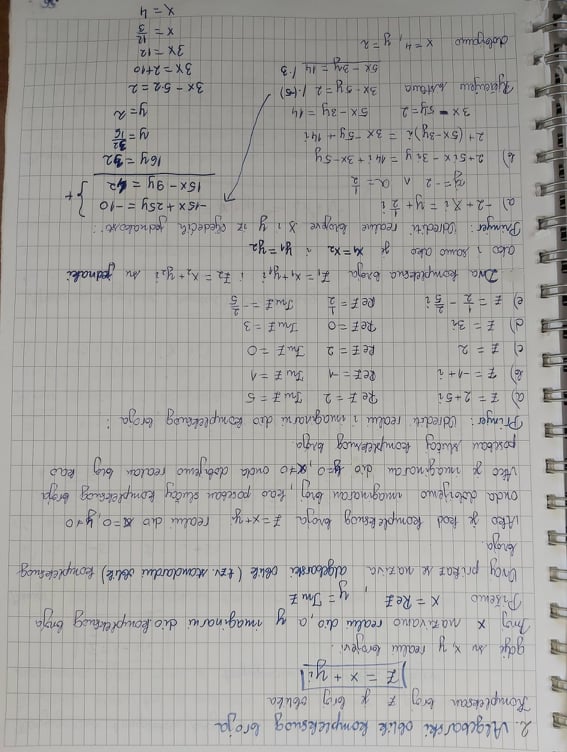 2. Algebarski oblik kompleksnog broja
Kompleksan broj z je broj oblika
z = x + yi
gdje su x, y realni brojevi.
Broj x nazivamo realni dio, a y imaginarni dio kompleksnog broja
Pišemo x = Re z , y = Im z
Ovaj prikaz se naziva algebarski oblik (tzv. standardni oblik) kompleksnog
broja.
Ako je kod kompleksnog broja z = x+yi realni dio x=0, y≠0
onda dobijemo imaginaran broj, kao poseban slučaj kompleksnog broja
Ako je imaginaran dio y=0, x≠0 onda dobijemo realan broj kao
poseban slučaj kompleksnog broja
Primjer: Odrediti realni i imaginarni dio kompleksnog broja:
a) z = 2+5i Re z = 2 Im z = 5
b) z = -1+i Re z = -1 Im z = 1
c) z = 2 Re z = 2 Im z = 0
d) z = 3i Re z = 0 Im z = 3
e) z = 1/2 - 2/5 i Re z = 1/2 Im z = -2/5
Dva kompleksna broja z₁ = x₁+y₁i i z₂ = x₂+y₂i su jednaki
ako i samo ako je x₁=x₂ i y₁=y₂
Primjer: Odrediti realne brojeve x i y iz sljedećih jednakosti:
a) -2+xi = y+1/2 i
y = -2 ∧ a = 1/2
b) 2+5xi-3iy = 14i+3x-5y
2+(5x-3y)i = 3x-5y+14i
3x-5y=2 5x-3y=14
Rješenjem sistema 3x-5y=2 /·(-5)
5x-3y=14 /·3
dobijemo x=4, y=2
-15x+25y=-10
15x-9y=42 } +
16y=32
y=32/16
y=2
3x-5·2=2
3x=2+10
3x=12
x=12/3
x=4